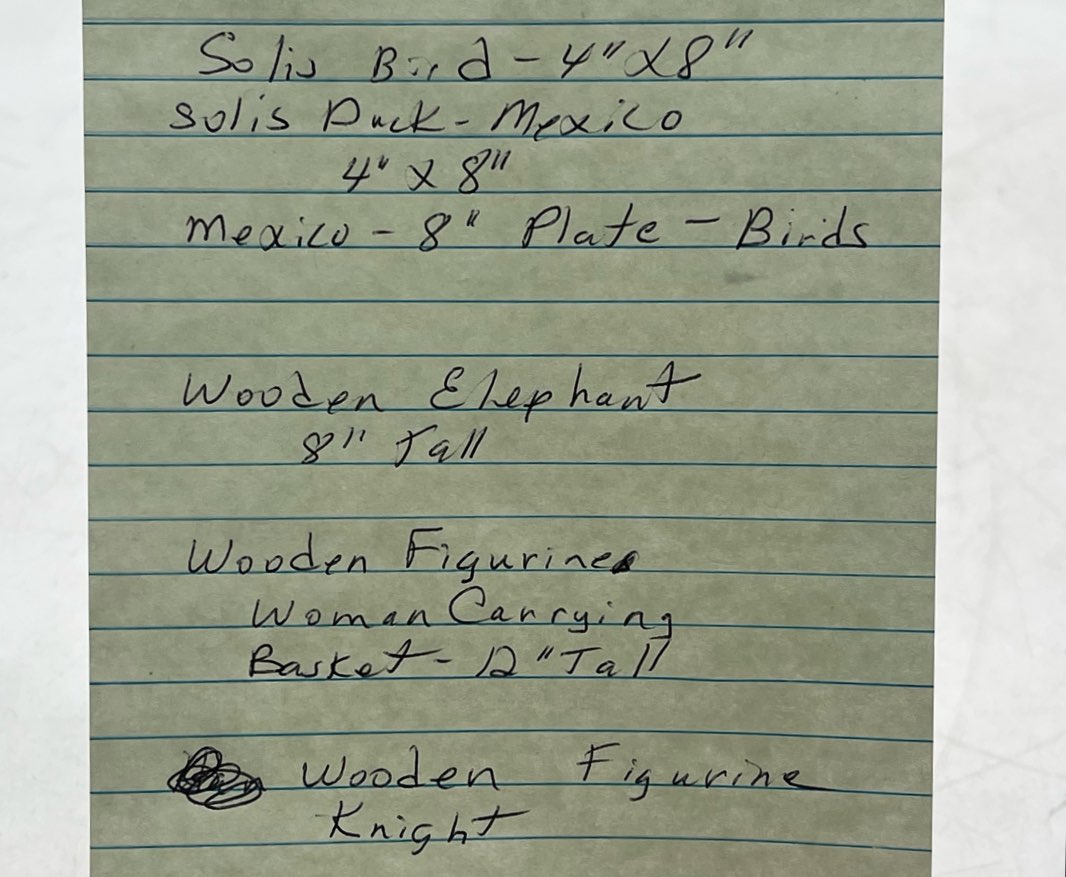 Solis Bird - 4" X 8"
Solis Duck - Mexico
4" X 8"
Mexico - 8" Plate - Birds
Wooden Elephant
8" Tall
Wooden Figurine
Woman Carrying
Basket - 12" Tall
Wooden Figurine
Knight